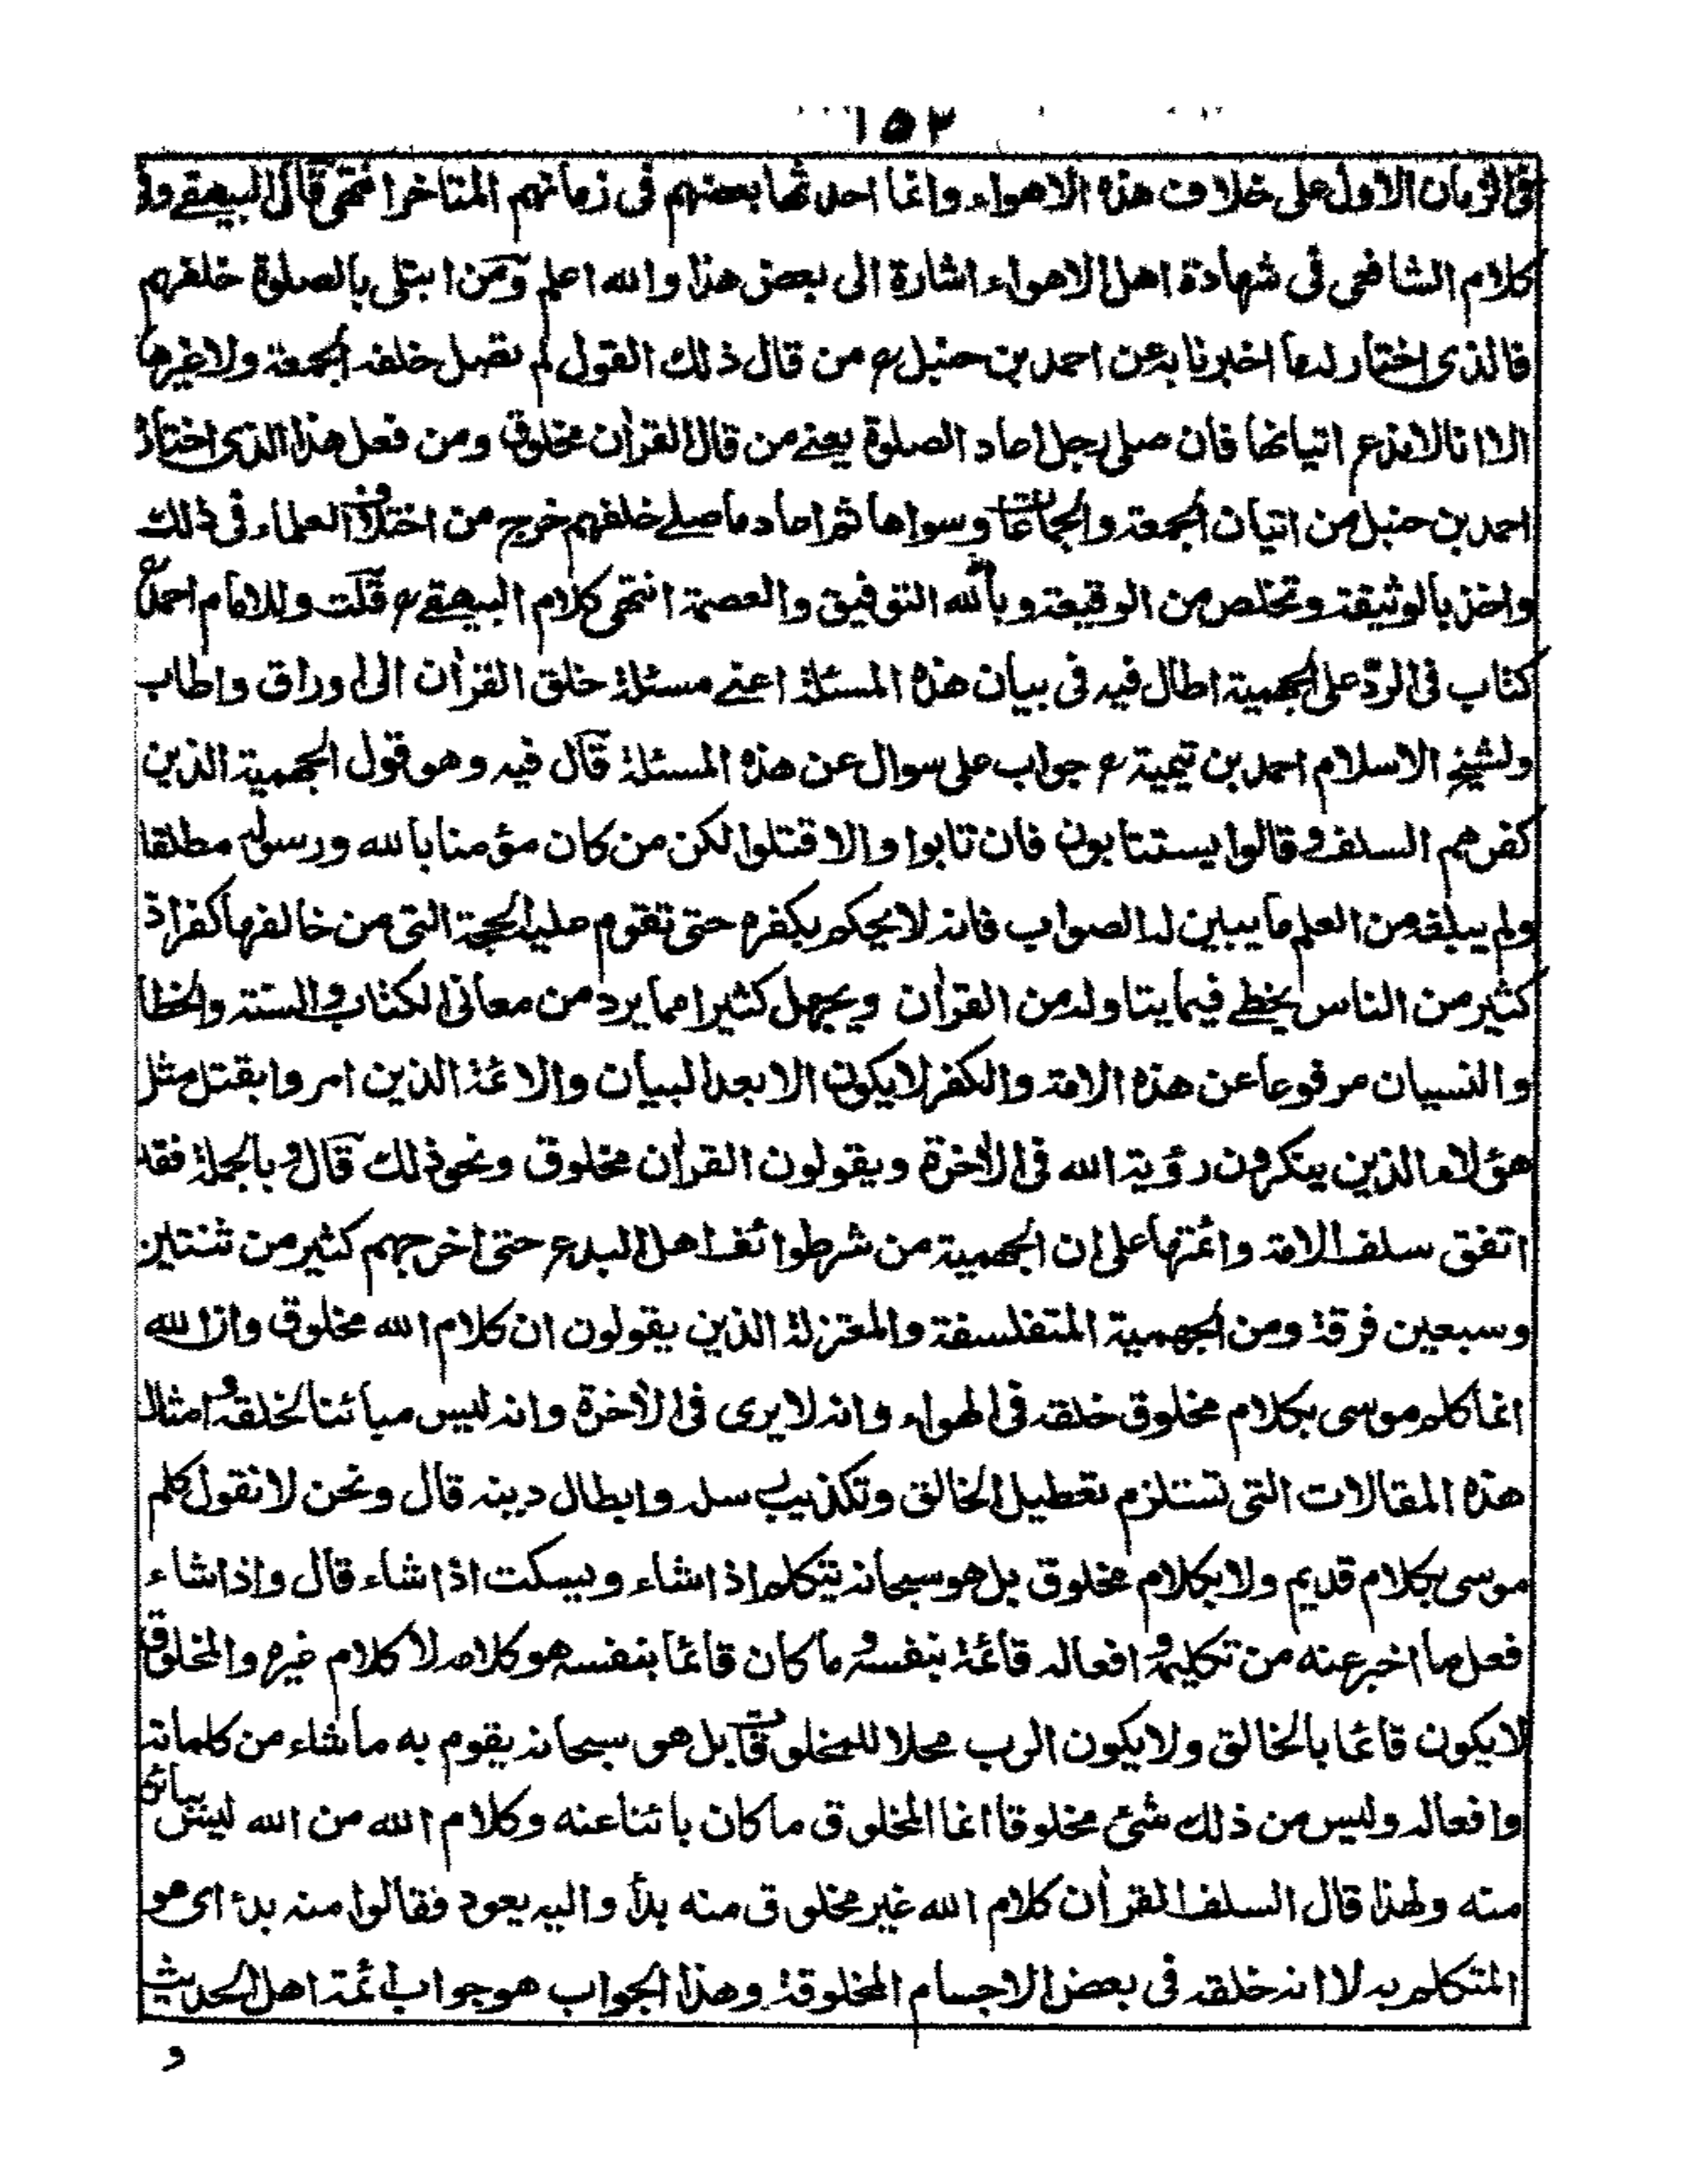 ١٥٢
فى الزمان الاول على خلاف هذه الاهواء وانما احدثها بعضهم فى زمانهم المتاخر انتهى قال البيهقے وفى
كلام الشافعى فى شهادة اهل الاهواء اشارة الى بعض هذا والله اعلم ومن ابتلى بالصلوة خلفهم
فالذى اختار له ما اخبرنا به عن احمد بن حنبل رح من قال ذلك القول لم نصل خلفه الجمعة ولا غيرها
الا انا لا ندع اتيانها فان صلى رجل اعاد الصلوة يعنے من قال القرأن مخلوق ومن فعل هذا الذى اختاره
احمد بن حنبل من اتيان الجمعة والجماعات وسواها ثم اعاد ما صلے خلفهم خرج من اختلاف العلماء فى ذلك
واخذ بالوثيقة وتخلص من الوقيعة وبالله التوفيق والعصمة انتهى كلام البيهقے رح قلت وللامام احمد رح
كتاب فى الردّ على الجهمية اطال فيه فى بيان هذه المسئلة اعنے مسئلة خلق القرأن الى اوراق واطاب
ولشيخ الاسلام احمد بن تيمية رح جواب على سوال عن هذه المسئلة قال فيه وهو قول الجهمية الذين
كفرهم السلف وقالوا يستتابون فان تابوا والا قتلوا لكن من كان مؤمنا بالله ورسوله مطلقا
ولم يبلغه من العلم ما يبين له الصواب فانه لا يحكم بكفره حتى تقوم عليه الحجة التى من خالفها كفر اذ
كثير من الناس يخطے فيما يتاوله من القرأن ويجهل كثيرا مما يرد من معانى الكتاب والسنة والخطا
والنسيان مرفوعا عن هذه الامة والكفر لا يكون الا بعد البيان والائمة الذين امروا بقتل مثل
هؤلاء الذين ينكرون رؤية الله فى الأخرة ويقولون القرأن مخلوق ونحو ذلك قال وبالجملة فقد
اتفق سلف الامة وائمتها على ان الجهمية من شر طوائف اهل البدع حتى اخرجهم كثير من ثنتين
وسبعين فرقة ومن الجهمية المتفلسفة والمعتزلة الذين يقولون ان كلام الله مخلوق وان الله
انما كلم موسى بكلام مخلوق خلقه فى الهواء وانه لا يرى فى الأخرة وانه ليس مبائنا لخلقه وامثال
هذه المقالات التى تستلزم تعطيل الخالق وتكذيب رسله وابطال دينه قال ونحن لا نقول كلم
موسى بكلام قديم ولا بكلام مخلوق بل هو سبحانه يتكلم اذا شاء ويسكت اذا شاء قال واذا شاء
فعل ما اخبر عنه من تكليمه وافعاله قائمة بنفسه وما كان قائما بنفسه هو كلامه لا كلام غيره والمخلوق
لا يكون قائما بالخالق ولا يكون الرب محلا للمخلوقات بل هو سبحانه يقوم به ما شاء من كلماته
وافعاله وليس من ذلك شئ مخلوقا انما المخلوق ما كان بائنا عنه وكلام الله من الله ليس ببائن
منه ولهذا قال السلف القرأن كلام الله غير مخلوق منه بدأ واليه يعود فقالوا منه بدء اى هو
المتكلم به لا انه خلقه فى بعض الاجسام المخلوقة وهذا الجواب هو جواب ائمة اهل الحديث
و